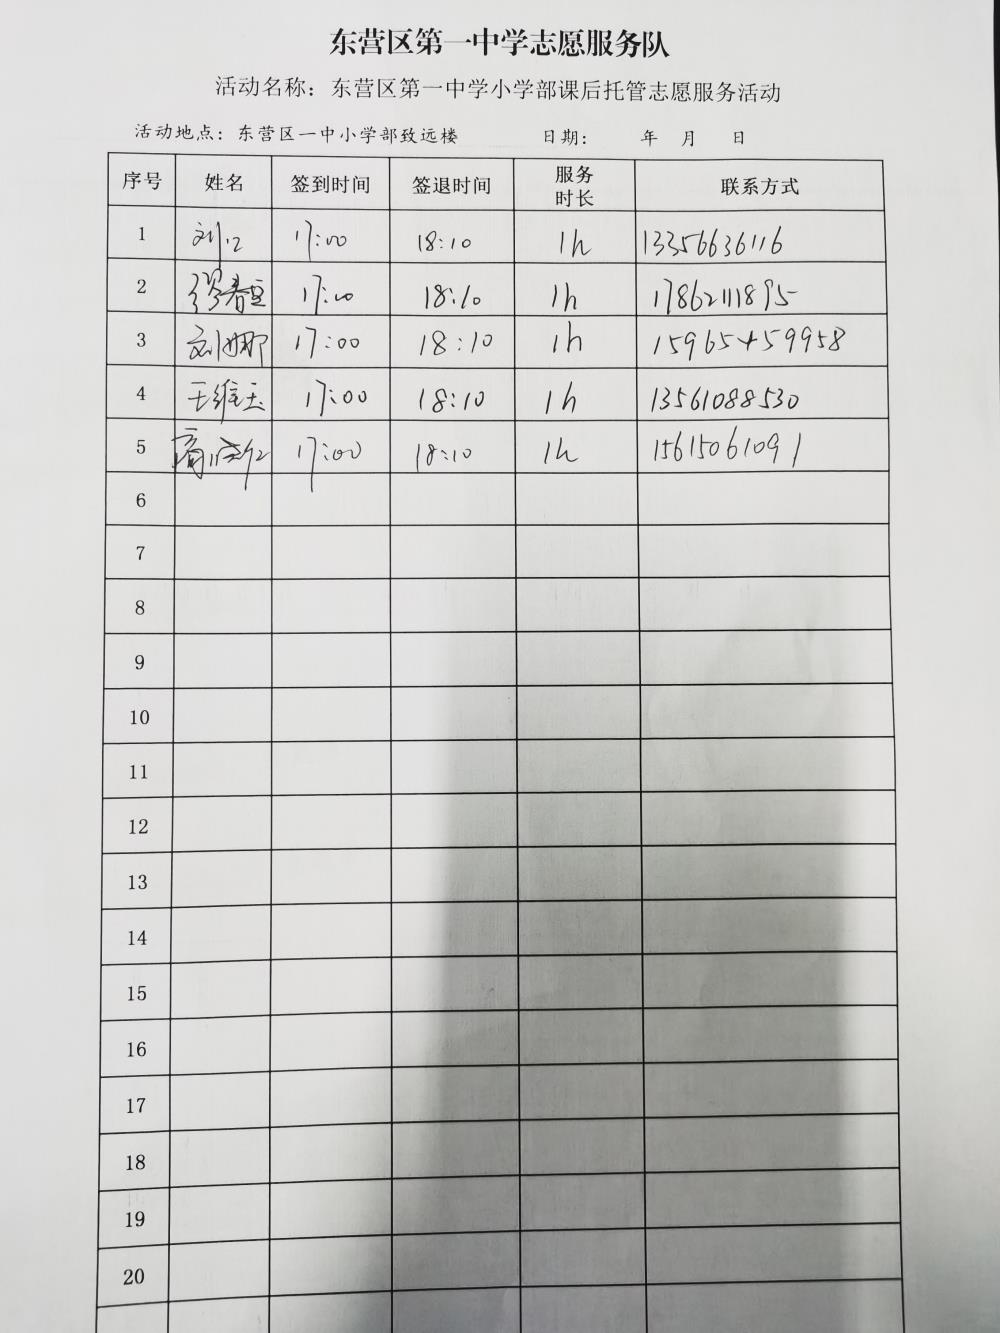 东营区第一中学志愿服务队
活动名称：东营区第一中学小学部课后托管志愿服务活动
活动地点：东营区一中小学部致远楼 日期： 年 月 日
序号 姓名 签到时间 签退时间 服务时长 联系方式
1 刘 17:00 18:10 1h 13356636116
2 春 17:00 18:10 1h 17862111895
3 刘娜 17:00 18:10 1h 15965459958
4 王维玉 17:00 18:10 1h 13561088530
5 商 17:00 18:10 1h 15615061091
6
7
8
9
10
11
12
13
14
15
16
17
18
19
20